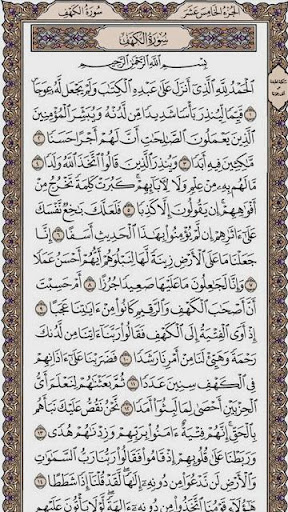 سُورَةُ الكَهْفِ الجُزْءُ الخَامِسَ عَشَرَ
سُورَةُ الكَهْفِ
بِسْمِ اللَّهِ الرَّحْمَٰنِ الرَّحِيمِ
الْحَمْدُ لِلَّهِ الَّذِي أَنزَلَ عَلَىٰ عَبْدِهِ الْكِتَٰبَ وَلَمْ يَجْعَل لَّهُ عِوَجَا
١ قَيِّمًا لِّيُنذِرَ بَأْسًا شَدِيدًا مِّن لَّدُنْهُ وَيُبَشِّرَ الْمُؤْمِنِينَ
الَّذِينَ يَعْمَلُونَ الصَّٰلِحَٰتِ أَنَّ لَهُمْ أَجْرًا حَسَنًا
٢ مَّٰكِثِينَ فِيهِ أَبَدًا ٣ وَيُنذِرَ الَّذِينَ قَالُوا اتَّخَذَ اللَّهُ وَلَدًا ٤
مَّا لَهُم بِهِ مِنْ عِلْمٍ وَلَا لِآبَائِهِمْ كَبُرَتْ كَلِمَةً تَخْرُجُ مِنْ
أَفْوَٰهِهِمْ إِن يَقُولُونَ إِلَّا كَذِبًا ٥ فَلَعَلَّكَ بَٰخِعٌ نَّفْسَكَ
عَلَىٰ ءَاثَٰرِهِمْ إِن لَّمْ يُؤْمِنُوا بِهَٰذَا الْحَدِيثِ أَسَفًا ٦ إِنَّا
جَعَلْنَا مَا عَلَى الْأَرْضِ زِينَةً لَّهَا لِنَبْلُوَهُمْ أَيُّهُمْ أَحْسَنُ عَمَلًا
٧ وَإِنَّا لَجَٰعِلُونَ مَا عَلَيْهَا صَعِيدًا جُرُزًا ٨ أَمْ حَسِبْتَ
أَنَّ أَصْحَٰبَ الْكَهْفِ وَالرَّقِيمِ كَانُوا مِنْ ءَايَٰتِنَا عَجَبًا
٩ إِذْ أَوَى الْفِتْيَةُ إِلَى الْكَهْفِ فَقَالُوا رَبَّنَا ءَاتِنَا مِن لَّدُنكَ
رَحْمَةً وَهَيِّئْ لَنَا مِنْ أَمْرِنَا رَشَدًا ١٠ فَضَرَبْنَا عَلَىٰ ءَاذَانِهِمْ
فِي الْكَهْفِ سِنِينَ عَدَدًا ١١ ثُمَّ بَعَثْنَٰهُمْ لِنَعْلَمَ أَيُّ
الْحِزْبَيْنِ أَحْصَىٰ لِمَا لَبِثُوا أَمَدًا ١٢ نَّحْنُ نَقُصُّ عَلَيْكَ نَبَأَهُم
بِالْحَقِّ إِنَّهُمْ فِتْيَةٌ ءَامَنُوا بِرَبِّهِمْ وَزِدْنَٰهُمْ هُدًى ١٣
وَرَبَطْنَا عَلَىٰ قُلُوبِهِمْ إِذْ قَامُوا فَقَالُوا رَبُّنَا رَبُّ السَّمَٰوَٰتِ
وَالْأَرْضِ لَن نَّدْعُوَا مِن دُونِهِ إِلَٰهًا لَّقَدْ قُلْنَا إِذًا شَطَطًا ١٤
هَٰؤُلَاءِ قَوْمُنَا اتَّخَذُوا مِن دُونِهِ ءَالِهَةً لَّوْلَا يَأْتُونَ عَلَيْهِم